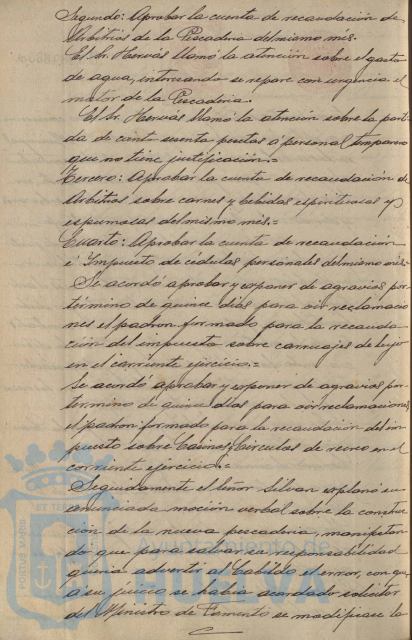 Segundo: Aprobar la cuenta de recaudación de
Arbitrios de la Pescaderia del mismo mes.
El Sr. Hervás llamó la atención sobre el gasto
de agua, interesando se repare con urgencia el
motor de la Pescaderia.
El Sr. Hervás llamó la atención sobre la parti-
da de cientosesenta pesetas á personal temporero
que no tiene justificación.=
Tercero: Aprobar la cuenta de recaudación de
Arbitrios sobre carnes y bebidas espirituosas y
espumosas del mismo mes.=
Cuarto: Aprobar la cuenta de recaudación
é Impuesto de cédulas personales del mismo mes=
Se acordó aprobar y exponer de agravios por
término de quince días para oir reclamacio
nes el padron formado para la recauda-
ción del impuesto sobre carruajes de lujo
en el corriente ejercicio.=
Se acordó aprobar y exponer de agravios por
término de quince días para oir reclamaciones
el padron formado para la recaudación del im
puesto sobre Casinos y Circulos de recreo en el
corriente ejercicio.=
Seguidamente el Señor Silvan explanó su
anunciada moción verbal sobre la construc
ción de la nueva pescaderia, manifestan-
do que para salvar su responsabilidad
queria advertir al Cabildo el error, con que
á su juicio se habia acordado solicitar
del Ministro de Fomento se modificase la
PORTUS MARIS
ET TER
Ayuntamiento de
HUELVA